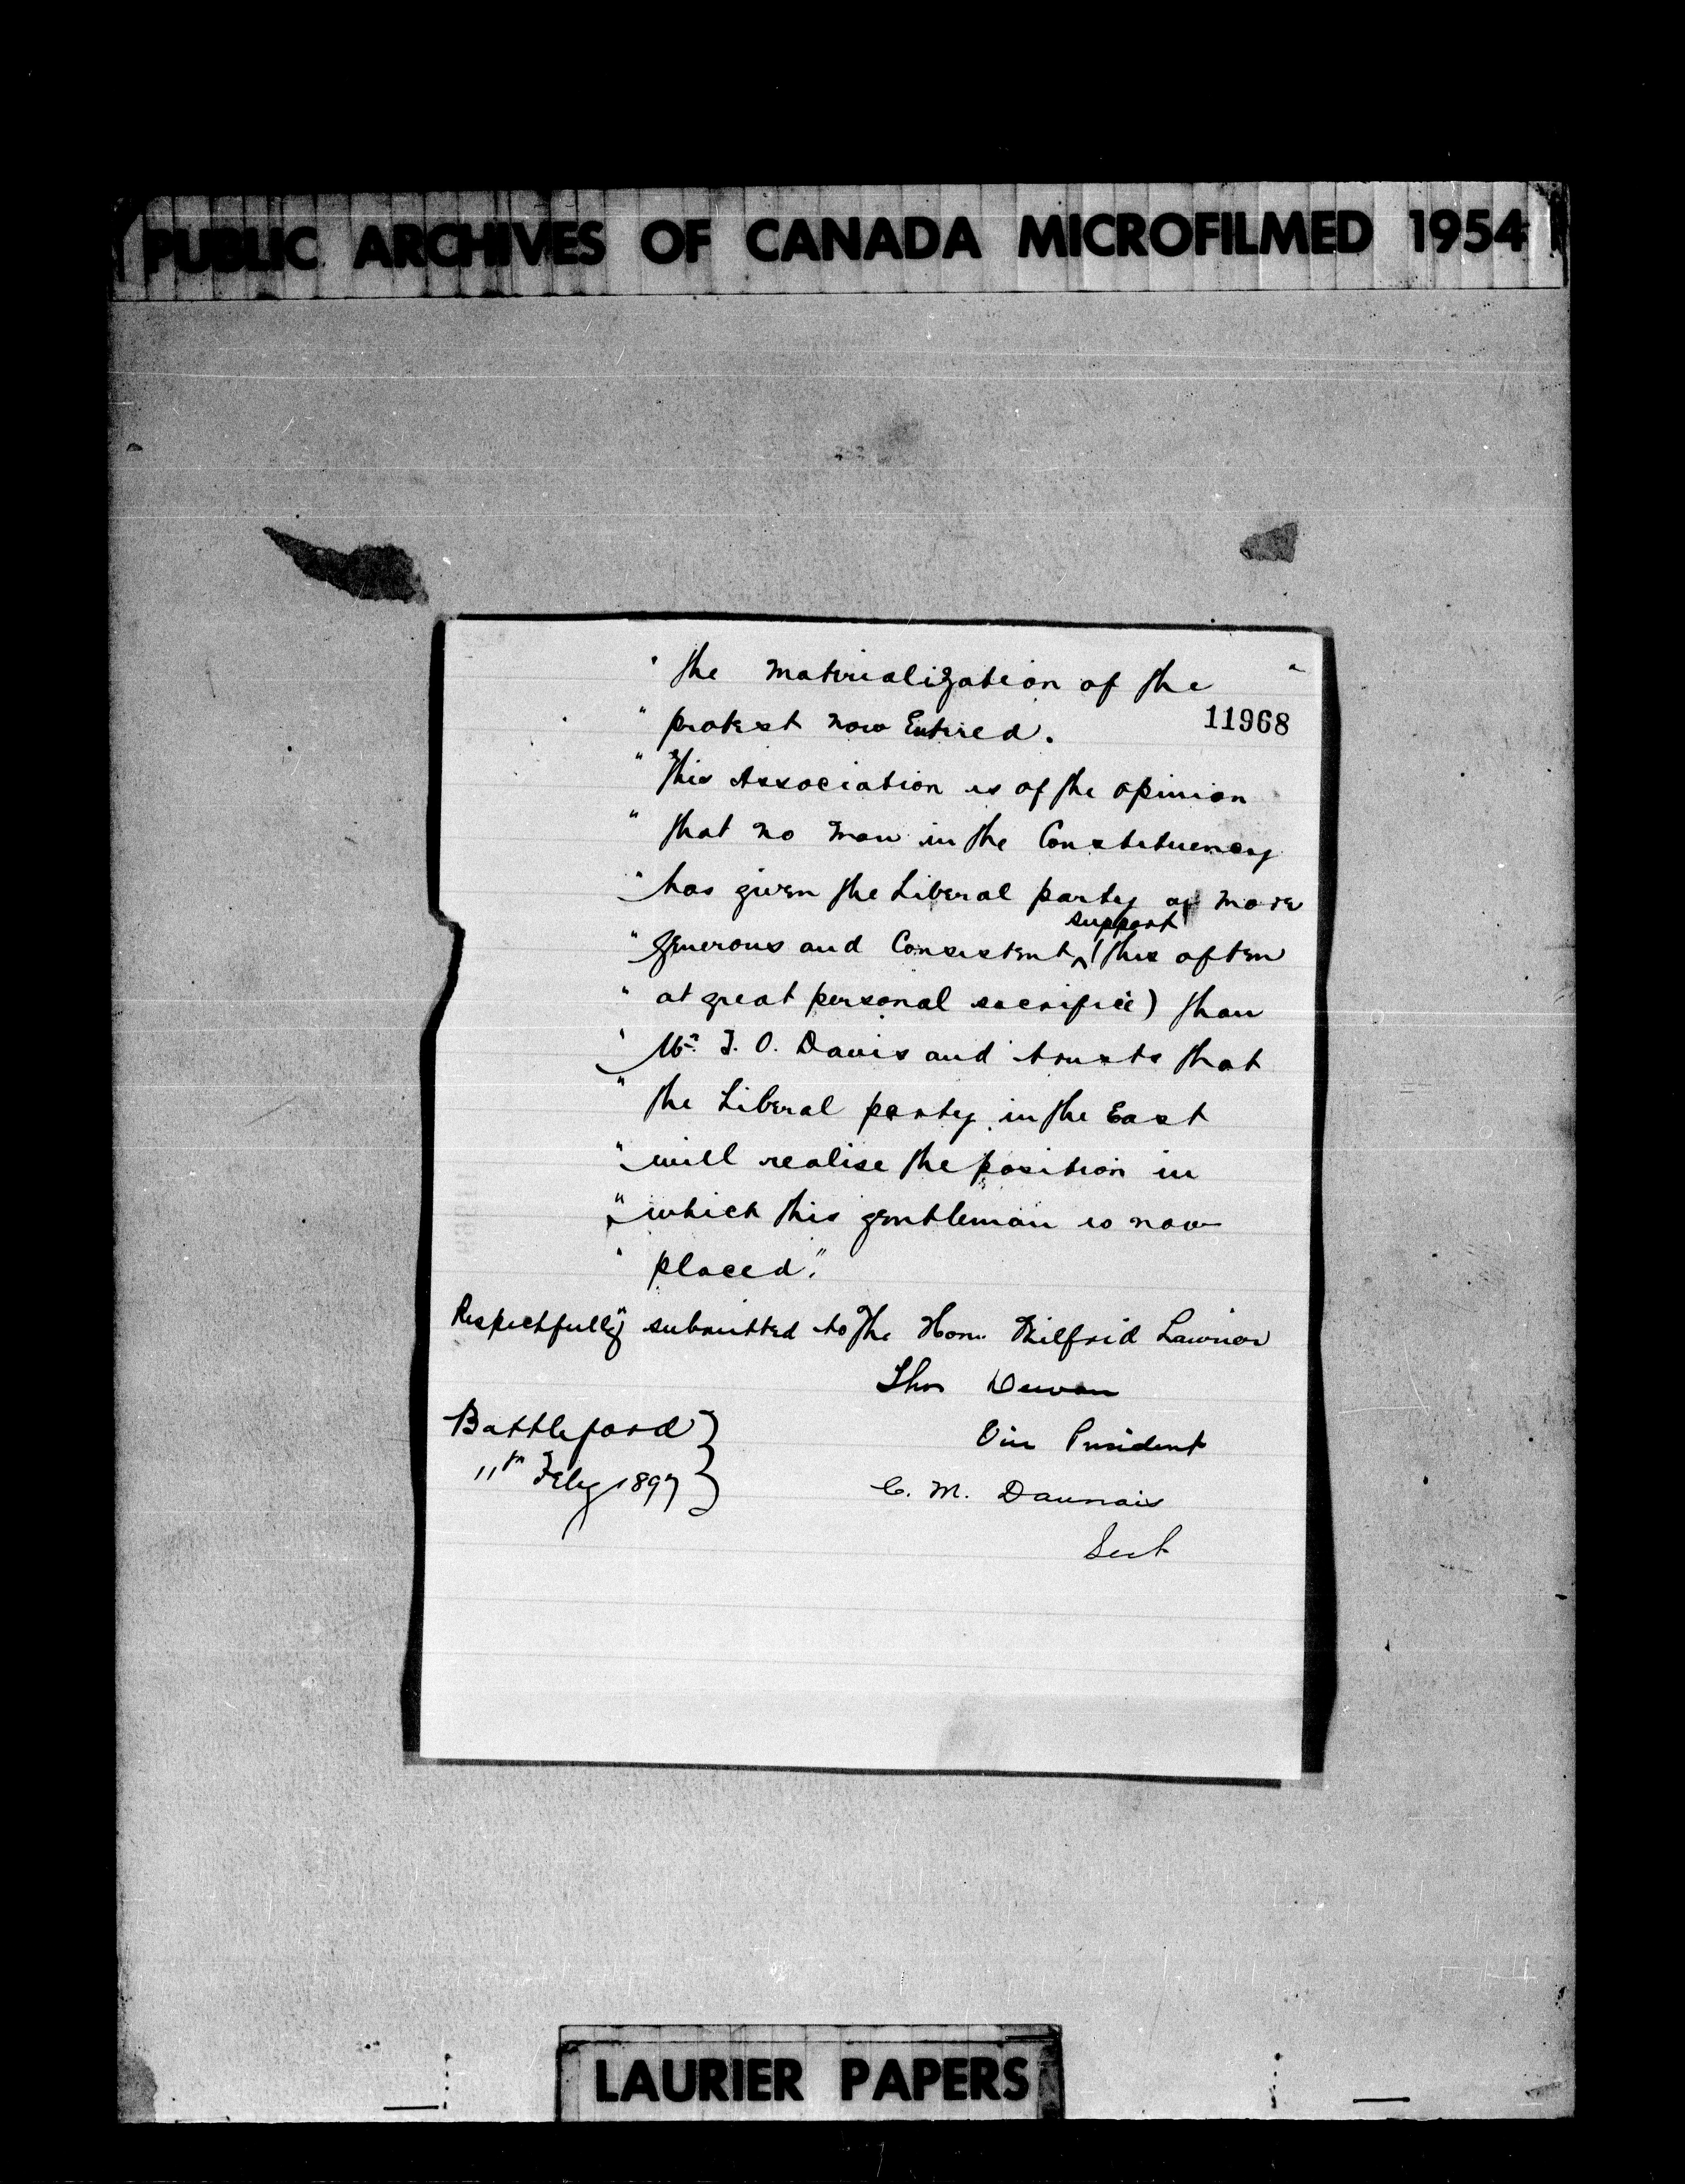 PUBLIC ARCHIVES OF CANADA MICROFILMED 1954
" the materialization of the "
11968
" protest now Entered.
" This Association is of the opinion
" that no man in the Constituency
" has given the Liberal party a more
support
" generous and Consistent ^ (this often
" at great personal sacrifice) than
" Mr. T. O. Davis and trusts that
" the Liberal party in the East
" will realise the position in
" which this gentleman is now
" placed."
Respectfully submitted to The Hon. Wilfrid Laurier
Thos Dewan
Battleford }
Vice President
11th Feby 1897 }
C. M. Daunais
Sect
LAURIER PAPERS